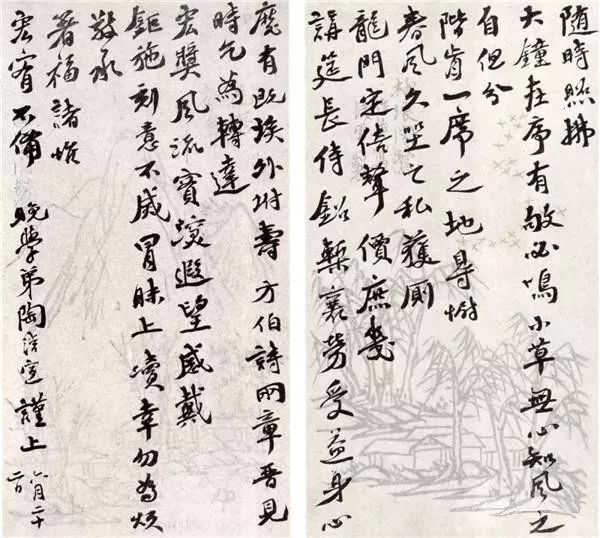 隨時照拂
大鐘在序有敂必鳴小草無心知風之
自但分
階前一席之地得樹
春風久坐之私獲廁
龍門定倍聲價庶幾
講筵長侍鉛槧襄勞受益身心
度有既矣外附壽方伯詩兩章晉見
時乞為轉達
宏獎風流實深遐望感戴
鉅施刻意不感冒昧上瀆幸勿為煩
敬承
著福諸惟
宏宥不備 晚學弟陶濬宣謹上 八月二十
二日